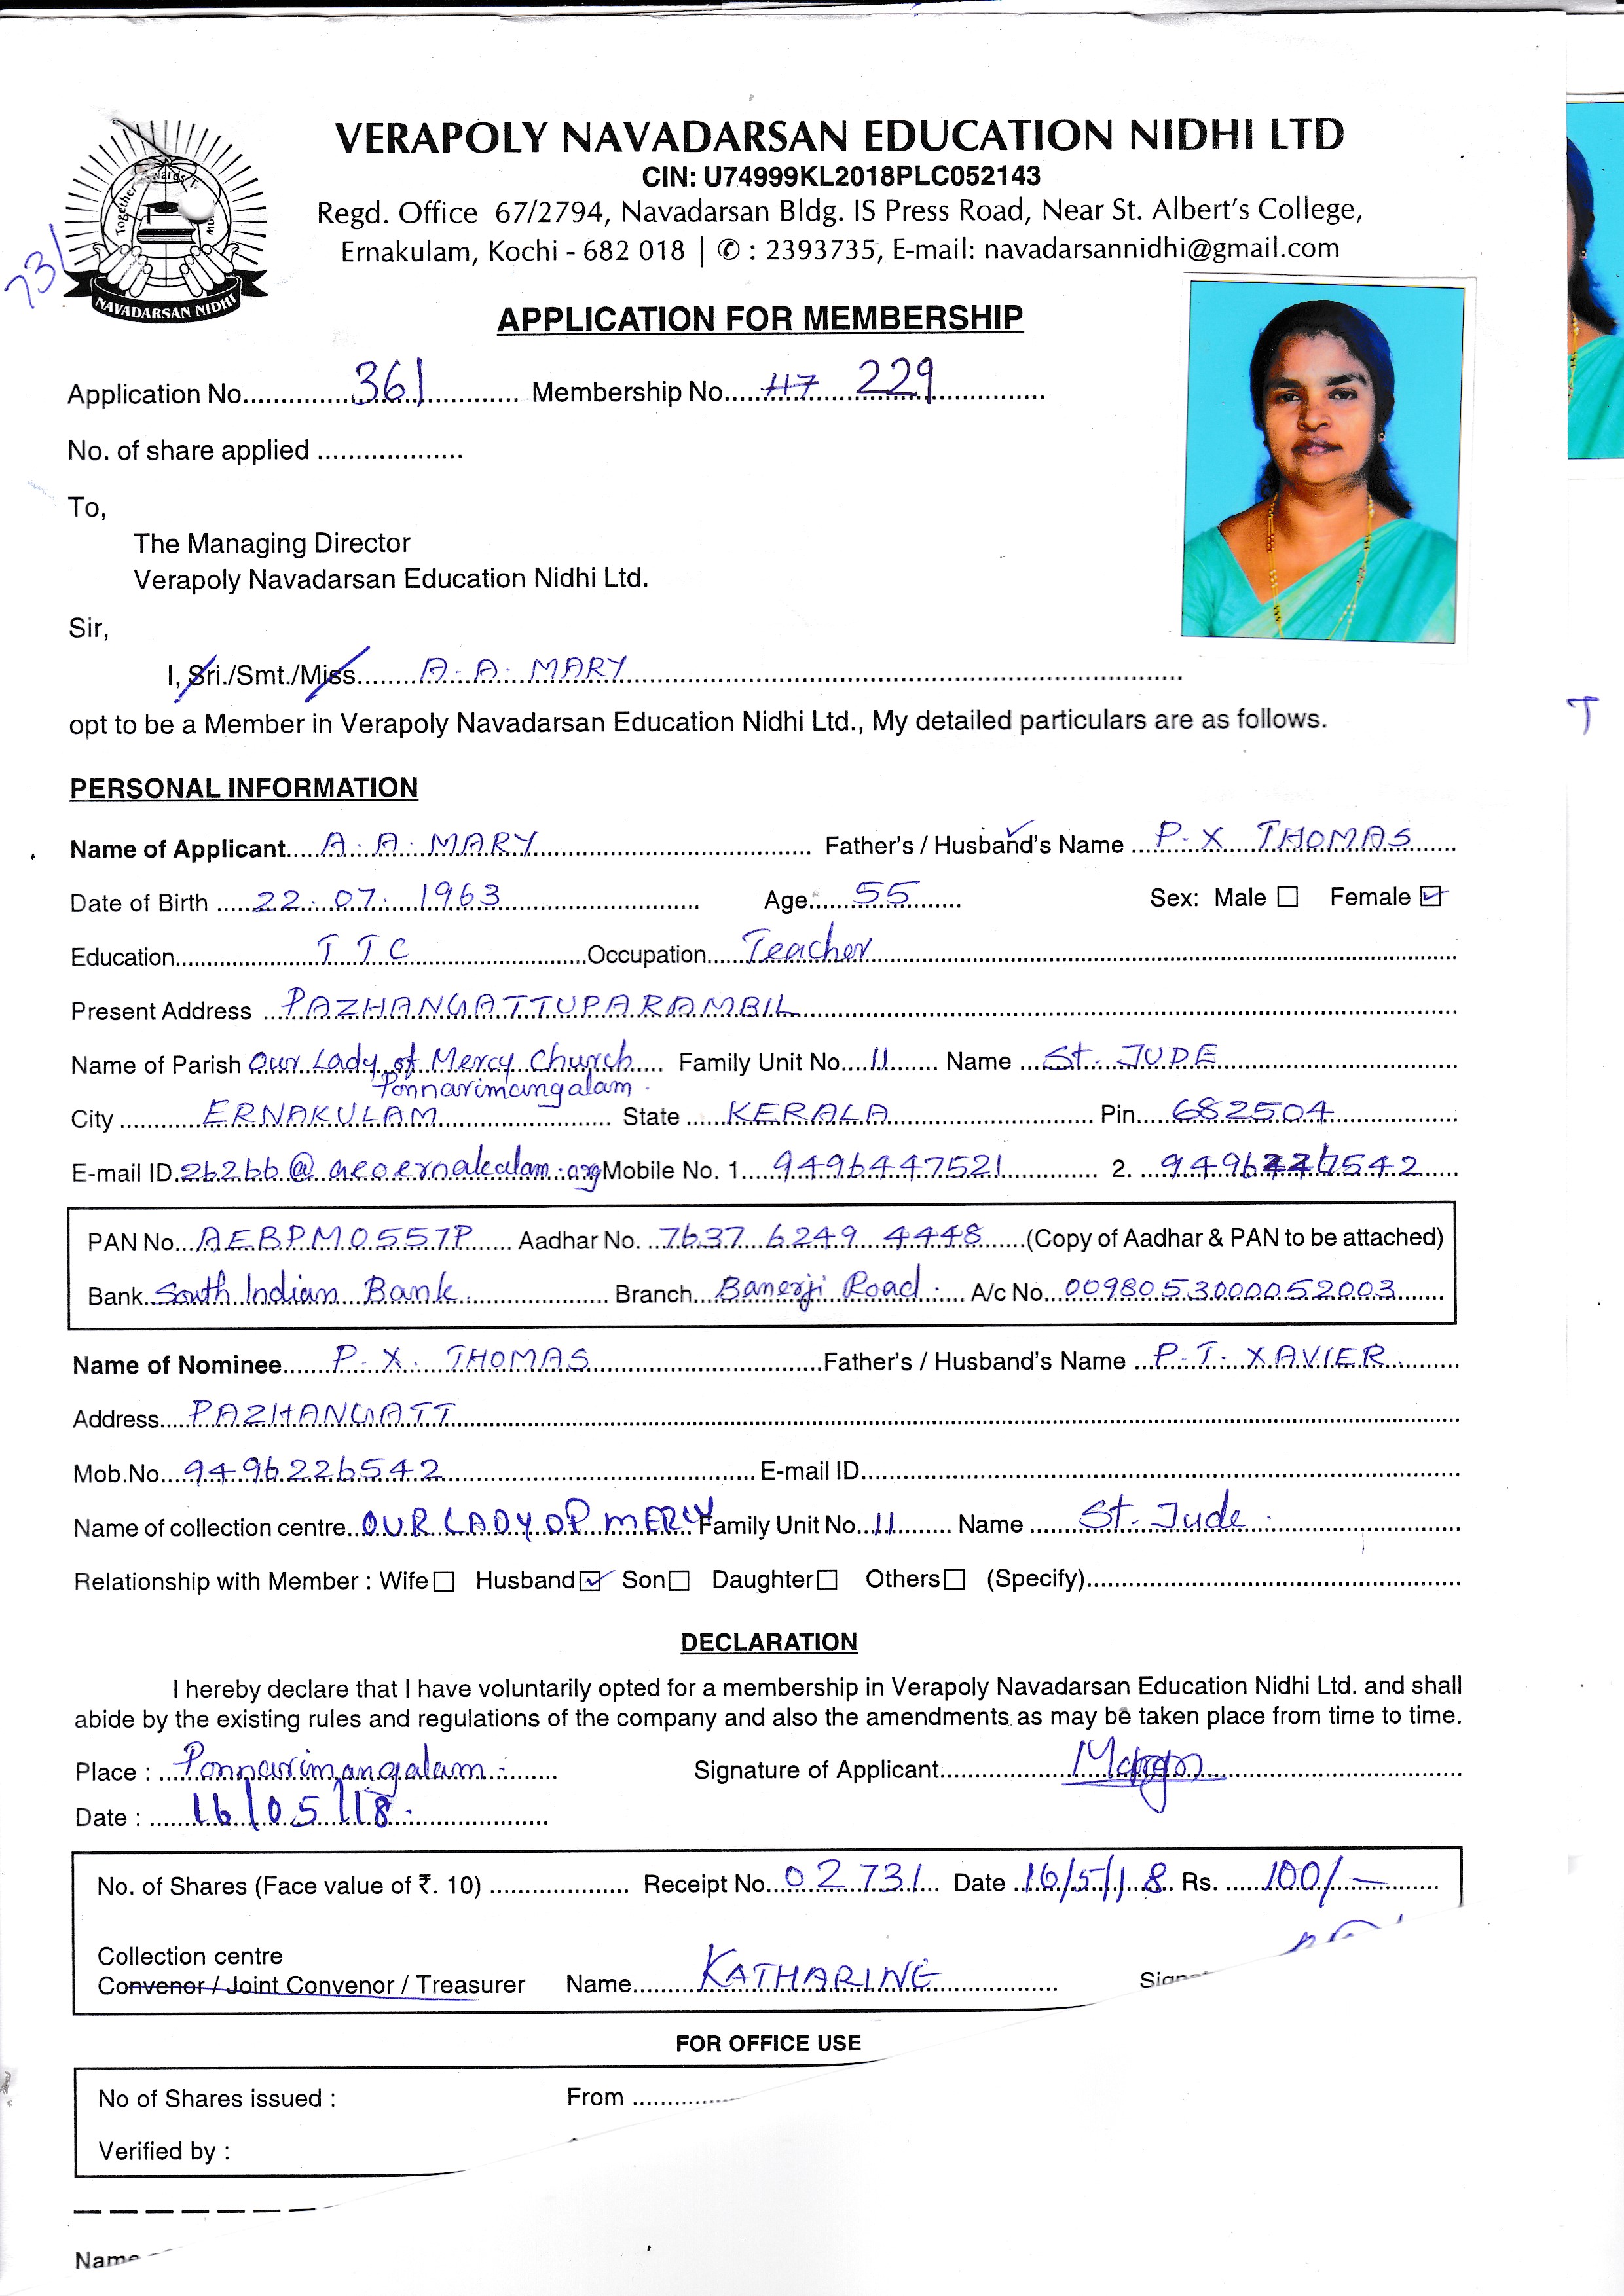 VERAPOLY NAVADARSAN EDUCATION NIDHI LTD
CIN: U74999KL2018PLC052143
Regd. Office 67/2794, Navadarsan Bldg. IS Press Road, Near St. Albert's College,
Ernakulam, Kochi - 682 018 | ✆ : 2393735, E-mail: navadarsannidhi@gmail.com
731
Together wards T
NAVADARSAN NIDHI
APPLICATION FOR MEMBERSHIP
Application No. 361 Membership No. 117 229
No. of share applied
To,
The Managing Director
Verapoly Navadarsan Education Nidhi Ltd.
Sir,
I, Sri./Smt./Miss A. A. MARY
opt to be a Member in Verapoly Navadarsan Education Nidhi Ltd., My detailed particulars are as follows.
T
PERSONAL INFORMATION
Name of Applicant A. A. MARY Father's / Husband's Name P. X THOMAS
Date of Birth 22. 07. 1963 Age 55 Sex: Male Female
Education T T C Occupation Teacher
Present Address PAZHANGATTUPARAMBIL
Name of Parish Our Lady of Mercy Church Family Unit No. 11 Name St. JUDE
Ponnarimangalam
City ERNAKULAM State KERALA Pin 682504
E-mail ID. 262bb@ Mobile No. 1. 9496447521 2.
PAN No. AEBPM0557P Aadhar No. 7637 6249 4448 (Copy of Aadhar & PAN to be attached)
Bank South Indian Bank Branch Banerji Road. A/c No. 0098053000052003
Name of Nominee P. X. THOMAS Father's / Husband's Name P. T. XAVIER
Address PAZHANGATT
Mob.No. 9496226542 E-mail ID
Name of collection centre OUR LADY OF MERCY Family Unit No. 11 Name St. Jude.
Relationship with Member : Wife Husband Son Daughter Others (Specify)
DECLARATION
I hereby declare that I have voluntarily opted for a membership in Verapoly Navadarsan Education Nidhi Ltd. and shall
abide by the existing rules and regulations of the company and also the amendments as may be taken place from time to time.
Place : Ponnarimangalam. Signature of Applicant
Date : 16/05/18.
No. of Shares (Face value of ₹. 10) Receipt No. 02731 Date 16/5/18 Rs. 100/-
Collection centre
Convenor / Joint Convenor / Treasurer Name KATHARINE
FOR OFFICE USE
No of Shares issued : From
Verified by :
Name